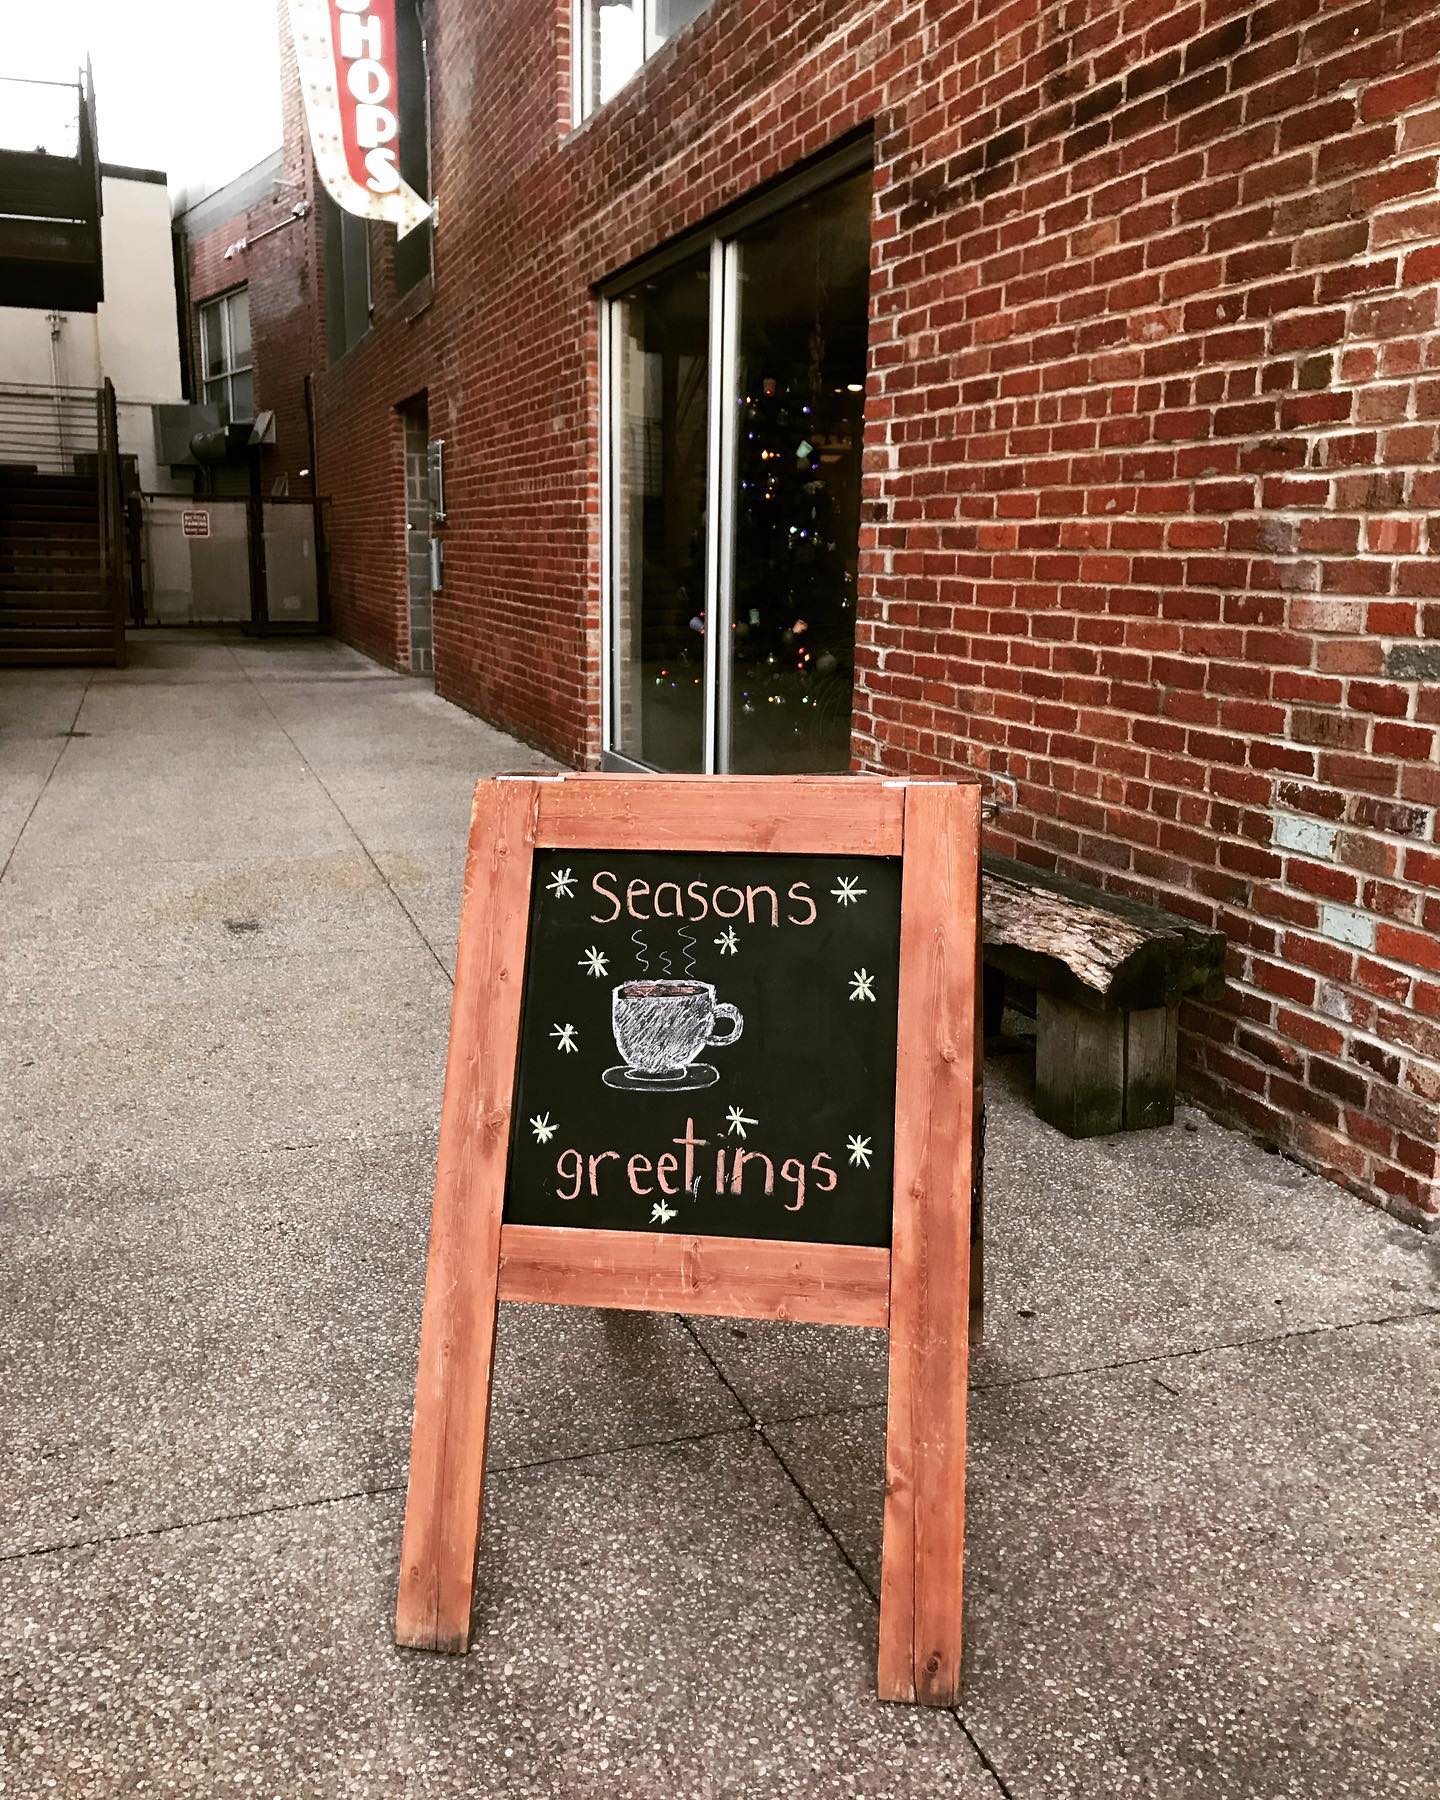 SHOPS
BICYCLE
PARKING
seasons
greetings